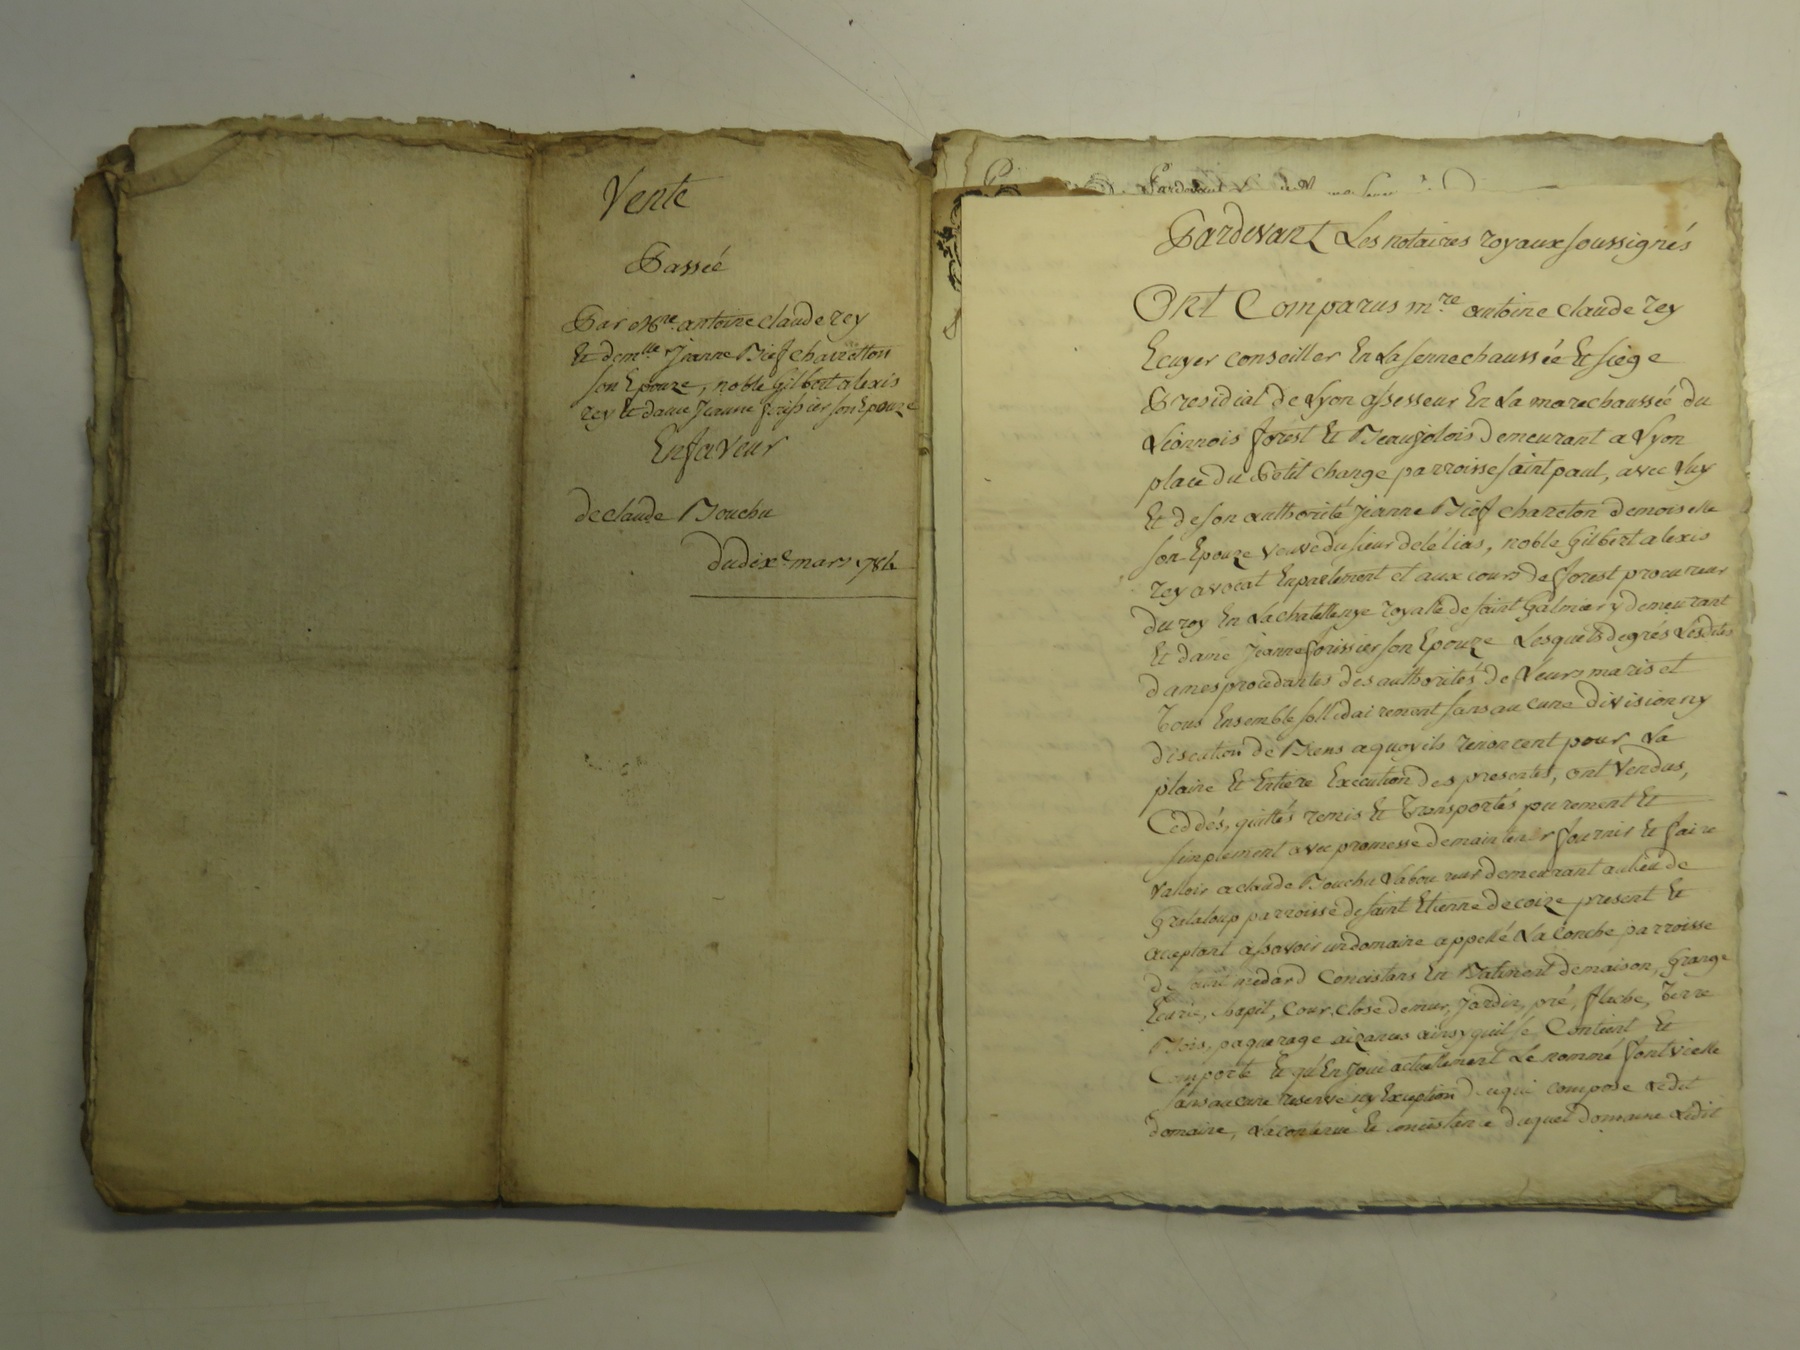 Vente
Passée
Par Mre. antoine claude rey
Et demlle Jeanne Rief charretton
son Epouze, noble gilbert alexis
rey Et dame Jeanne forissier son Epouze
En faveur
de claude Bouchu
du dixe mars 1784
Pardevant Les notaires royaux soussignés
Ont Comparus mre antoine claude rey
Ecuyer conseiller En La sennechaussée Et siége
Presidial de Lyon assesseur En La marechaussée du
Lionnois forest Et Beaujolois demeurant a Lyon
place du Petit change parroisse saint paul, avec Luy
Et de son authorité Jeanne Rief chareton demoiselle
son Epouze veuve du sieur delélias, noble gilbert alexis
rey avocat En parlement et aux cours de forest procureur
du roy En La chatellenye royalle de saint galmier y demeurant
Et dame Jeanne forissier son Epouze Lesquels de grés Lesdites
dames procedantes des authorités de Leurs maris et
Tous Ensemble sollidairement sans aucune division ny
discution de Biens a quoy ils renoncent pour La
plaine Et Entiere Execution des presentes, ont Vendus,
Ceddés, quittés remis Et Transportés purement Et
simplement avec promesse de maintenir fournir Et faire
valloir a claude Bouchu Laboureur demeurant au lieu de
Grelaloup parroisse de saint Etienne de coize present Et
acceptant assavoir un domaine appellé La Conche parroisse
de saint medard Concistans En Batiment de maison, grange
Ecurie, chapit, Cour close de mur, jardin, pré, fleche, Terre
Bois, paquerage aizances ainsy quil se Contient Et
Comporte Et qu'En joui actuellement Le nommé fontvielle
sans aucune reserve ny Exception de ce qui compose Ledit
domaine, La contenue Et concistance duquel domaine Ledit